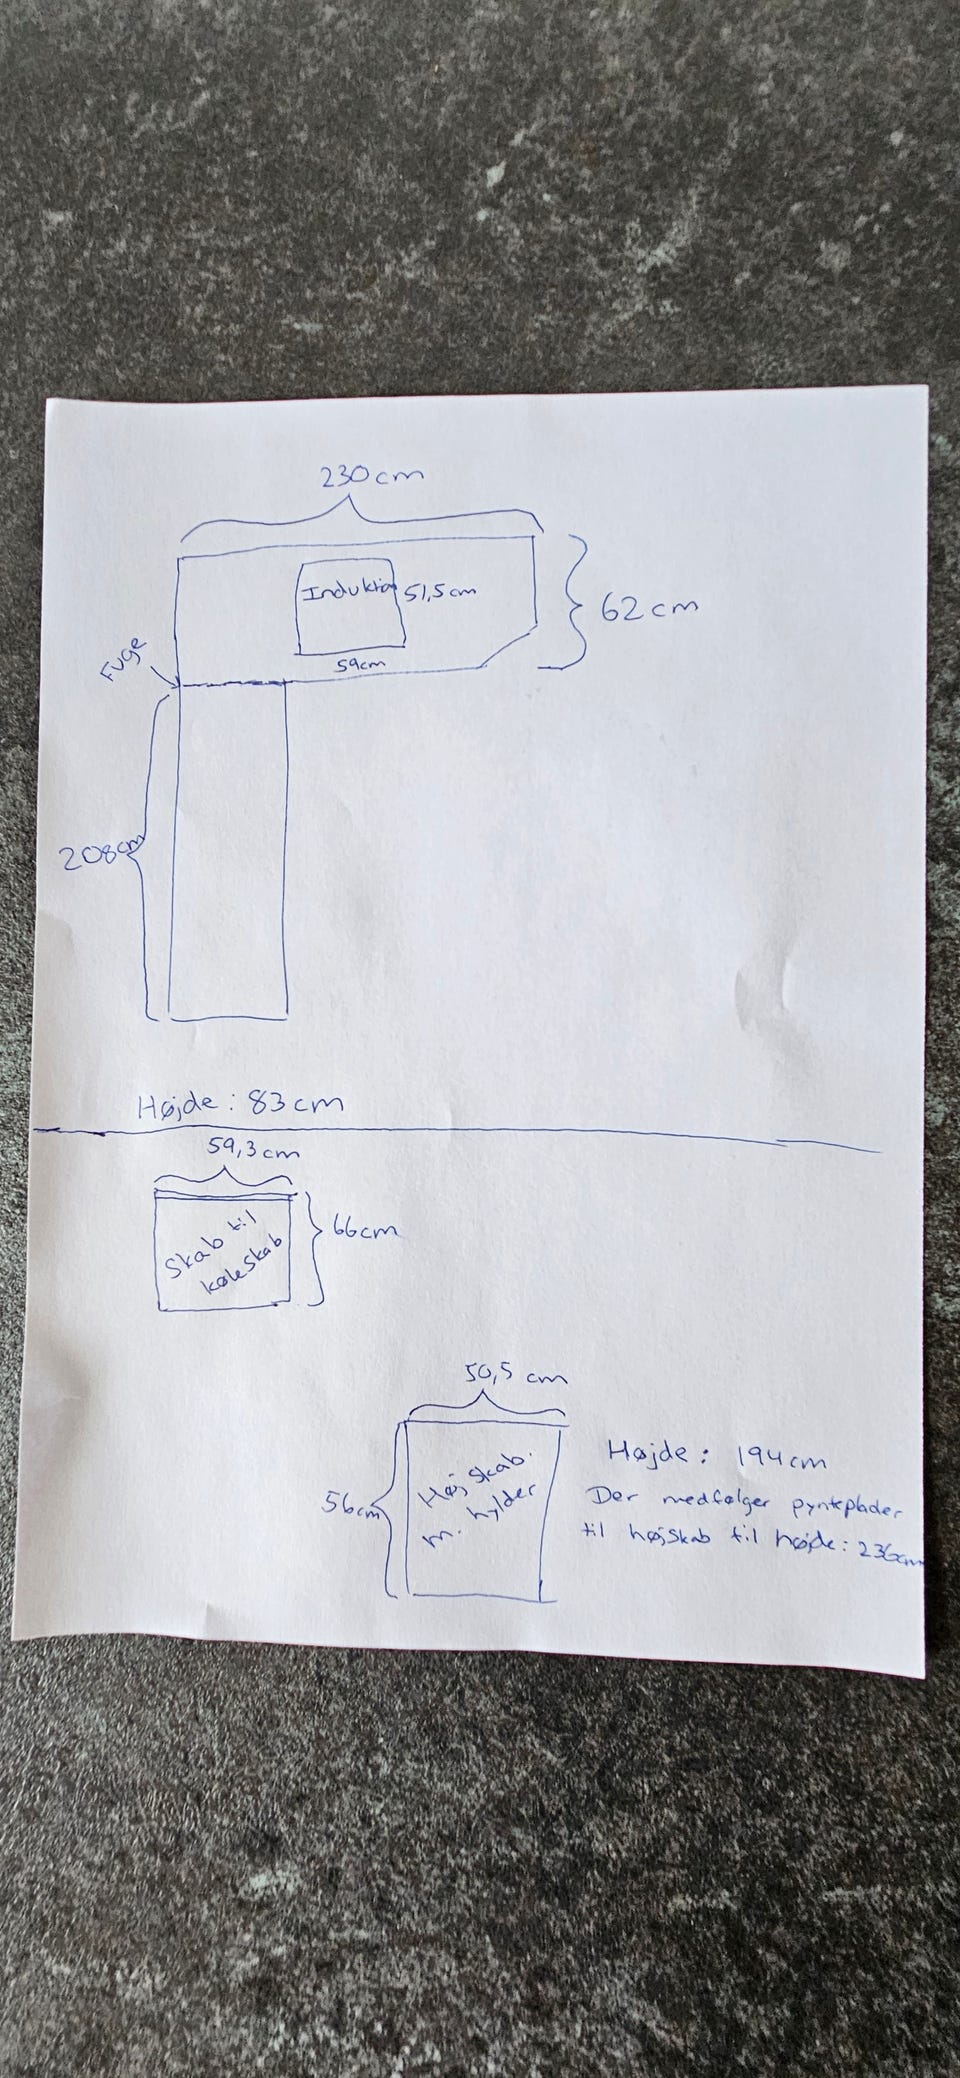 230cm
Induktion
51,5cm
62cm
59cm
Fuge
208cm
Højde: 83cm
59,3cm
Skab til
køleskab
66cm
50,5 cm
Højskab.
m. hylder
56cm
Højde: 194cm
Der medfølger pynteplader
til højskab til højde: 236cm